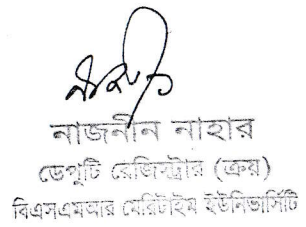 নাজনীন নাহার
ডেপুটি রেজিস্ট্রার (ক্রয়)
বিএসএমআর মেরিটাইম ইউনিভার্সিটি